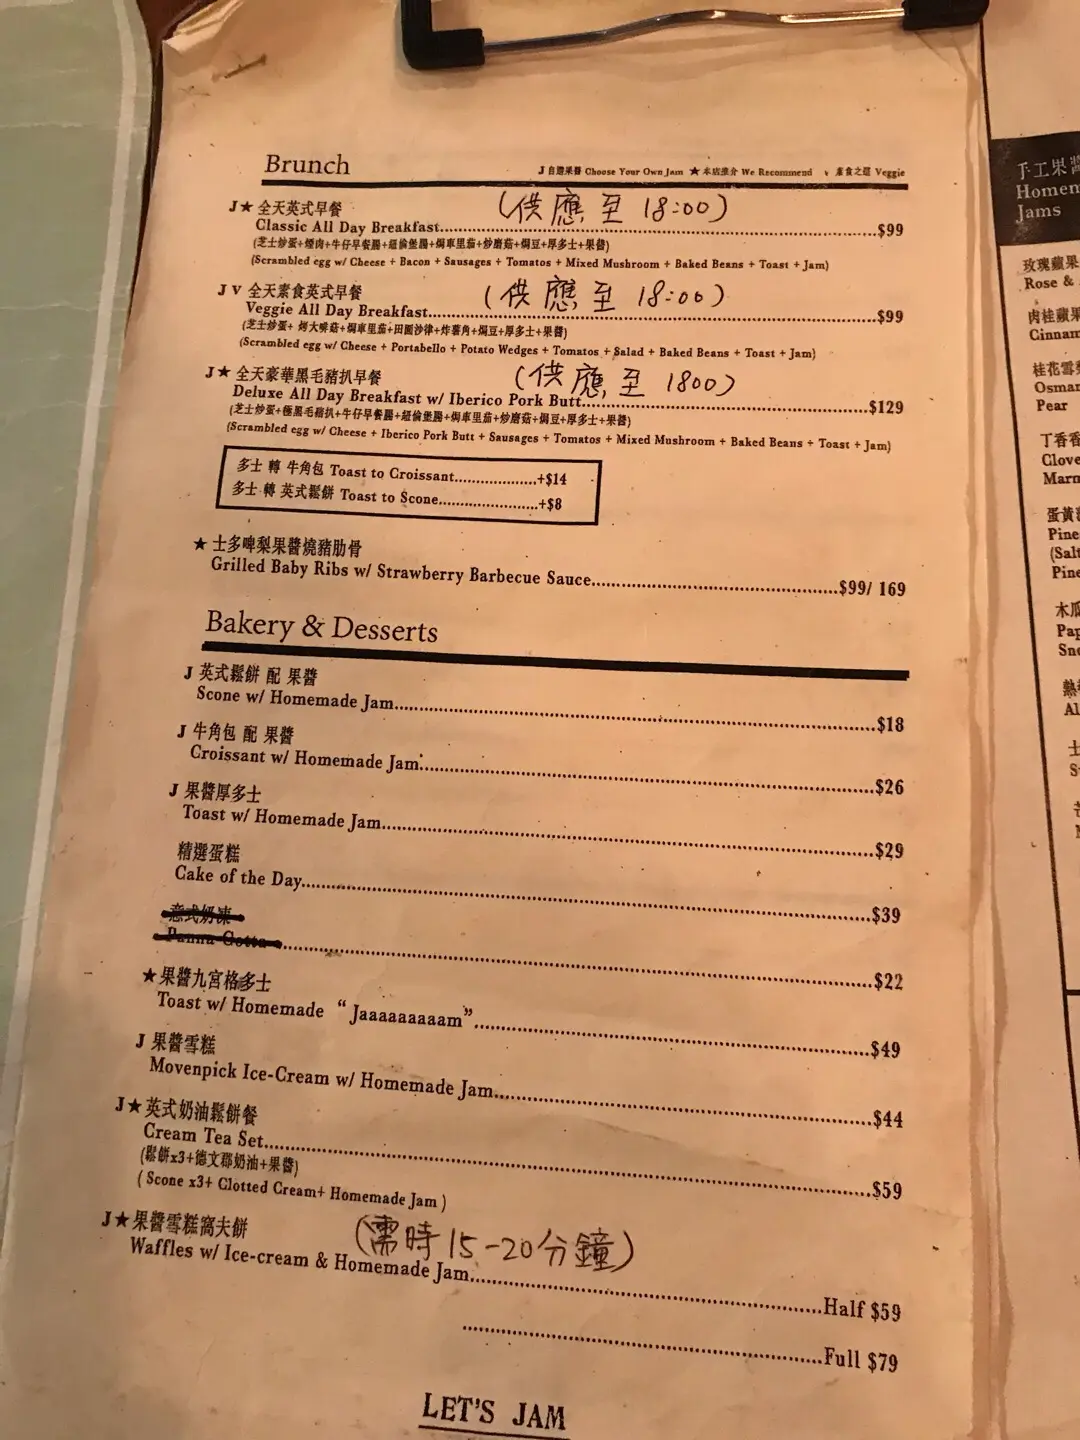 Brunch
J 自選果醬 Choose Your Own Jam ★本店推介 We Recommend v 素食之選 Veggie
J★ 全天英式早餐 (供應至 18:00)
Classic All Day Breakfast $99
(芝士炒蛋+煙肉+牛仔早餐腸+紐倫堡腸+焗車里茄+炒磨菇+焗豆+厚多士+果醬)
(Scrambled egg w/ Cheese + Bacon + Sausages + Tomatos + Mixed Mushroom + Baked Beans + Toast + Jam)
J V 全天素食英式早餐 (供應至 18:00)
Veggie All Day Breakfast $99
(芝士炒蛋+ 焗大啡菇+焗車里茄+田園沙律+炸薯角+焗豆+厚多士+果醬)
(Scrambled egg w/ Cheese + Portabello + Potato Wedges + Tomatos + Salad + Baked Beans + Toast + Jam)
J★ 全天豪華黑毛豬扒早餐 (供應至 1800)
Deluxe All Day Breakfast w/ Iberico Pork Butt $129
(芝士炒蛋+極黑毛豬扒+牛仔早餐腸+紐倫堡腸+焗車里茄+炒磨菇+焗豆+厚多士+果醬)
(Scrambled egg w/ Cheese + Iberico Pork Butt + Sausages + Tomatos + Mixed Mushroom + Baked Beans + Toast + Jam)
多士 轉 牛角包 Toast to Croissant +$14
多士 轉 英式鬆餅 Toast to Scone +$8
★ 士多啤梨果醬燒豬肋骨
Grilled Baby Ribs w/ Strawberry Barbecue Sauce $99/ 169
Bakery & Desserts
J 英式鬆餅 配 果醬
Scone w/ Homemade Jam $18
J 牛角包 配 果醬
Croissant w/ Homemade Jam $26
J 果醬厚多士
Toast w/ Homemade Jam $29
精選蛋糕
Cake of the Day $39
意式奶凍
Panna Cotta $22
★果醬九宮格多士
Toast w/ Homemade “Jaaaaaaaaam” $49
J 果醬雪糕
Movenpick Ice-Cream w/ Homemade Jam $44
J★英式奶油鬆餅餐
Cream Tea Set $59
(鬆餅x3+德文郡奶油+果醬)
( Scone x3+ Clotted Cream+ Homemade Jam )
J★果醬雪糕窩夫餅 (需時15-20分鐘)
Waffles w/ Ice-cream & Homemade Jam Half $59
Full $79
LET'S JAM
手工果醬
Homem
Jams
玫瑰蘋果
Rose &
肉桂蘋果
Cinnam
桂花雪梨
Osman
Pear
丁香香
Clove
Marm
蛋黃
Pine
(Salt
Pine
木瓜
Pap
Sno
熱
Al
士